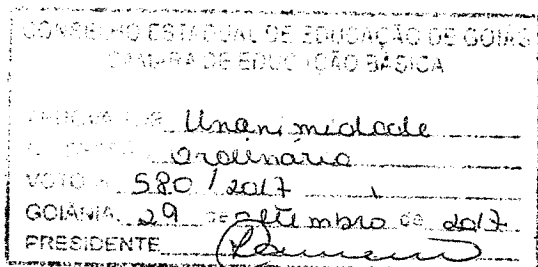 CONSELHO ESTADUAL DE EDUCAÇÃO DE GOIÁS
CÂMARA DE EDUCAÇÃO BÁSICA
Unanimidade
ordinária
VOTO N 580 / 2017
GOIÂNIA 29 DE setembro de 2017
PRESIDENTE